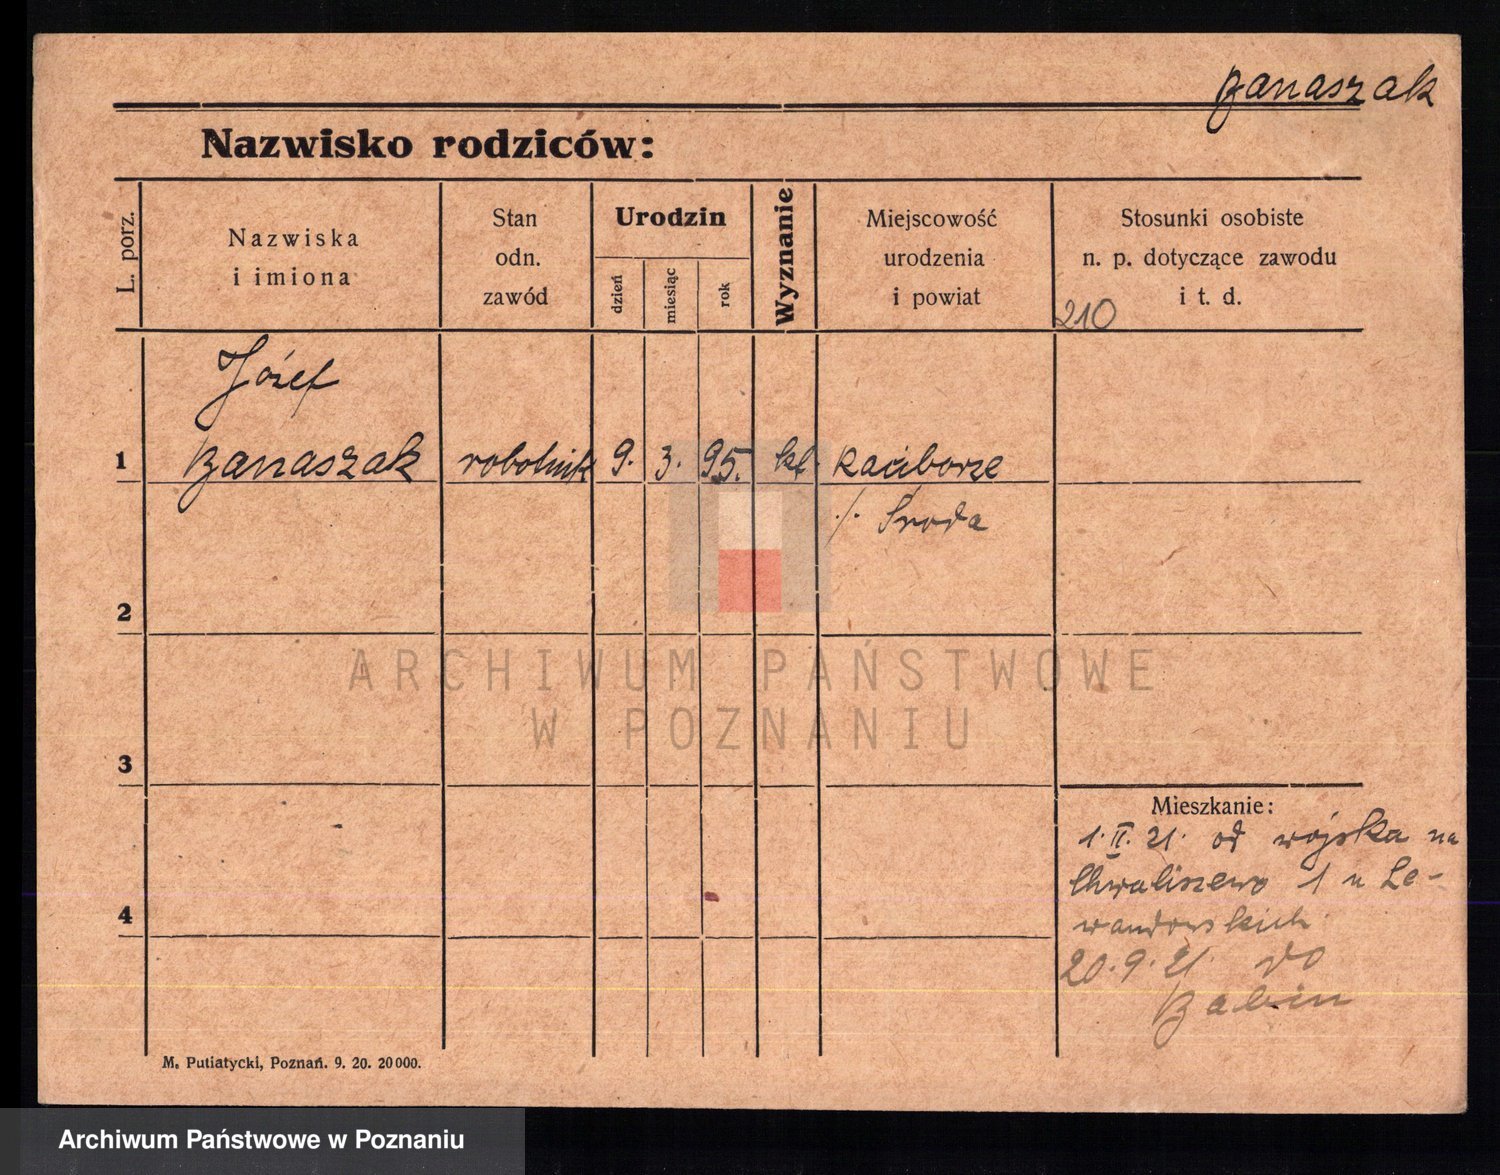 Banaszak
Nazwisko rodziców:
L. porz.
Nazwiska
i imiona
Stan
odn.
zawód
Urodzin
dzień
miesiąc
rok
Wyznanie
Miejscowość
urodzenia
i powiat
Stosunki osobiste
n. p. dotyczące zawodu
i t. d.
210
Józef
1 Banaszak robotnik 9. 3. 95. kt. Raciborze
/. Środa
2
ARCHIWUM PAŃSTWOWE
W POZNANIU
3
Mieszkanie:
1.II.21. od wojska na
Chwaliszewo 1 u Le-
4
wandowskich
20.9.21. do
Babin
M. Putiatycki, Poznań. 9. 20. 20000.
Archiwum Państwowe w Poznaniu